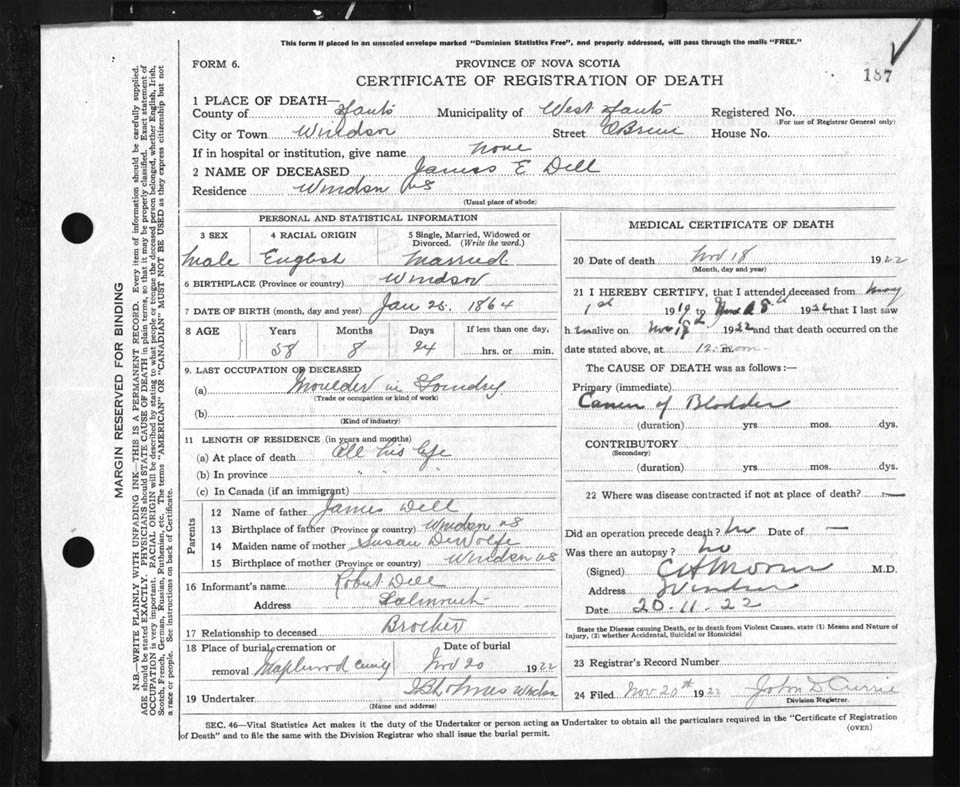 This form if placed in an unsealed envelope marked "Dominion Statistics Free", and properly addressed, will pass through the mails "FREE."
187
FORM 6.
PROVINCE OF NOVA SCOTIA
CERTIFICATE OF REGISTRATION OF DEATH
1 PLACE OF DEATH—
County of Hants Municipality of West Hants Registered No.
(For use of Registrar General only)
City or Town Windsor Street O'Brien House No.
If in hospital or institution, give name none
2 NAME OF DECEASED James E Dell
Residence Windsor NS
(Usual place of abode)
PERSONAL AND STATISTICAL INFORMATION
3 SEX 4 RACIAL ORIGIN 5 Single, Married, Widowed or Divorced. (Write the word.)
Male English Married
6 BIRTHPLACE (Province or country) Windsor
7 DATE OF BIRTH (month, day and year) Jan 25. 1864
8 AGE Years Months Days If less than one day,
58 8 24 hrs. or min.
9. LAST OCCUPATION OF DECEASED
(a) Moulder in Foundry
(Trade or occupation or kind of work)
(b)
(Kind of industry)
11 LENGTH OF RESIDENCE (in years and months)
(a) At place of death All his life
(b) In province " " "
(c) In Canada (if an immigrant)
Parents
12 Name of father James Dell
13 Birthplace of father (Province or country) Windsor NS
14 Maiden name of mother Susan DeWolfe
15 Birthplace of mother (Province or country) Windsor NS
16 Informant's name Robert Dell
Address Falmouth
17 Relationship to deceased Brother
18 Place of burial, cremation or removal Maplewood Date of burial Nov 20 1922
19 Undertaker Windsor
(Name and address)
MEDICAL CERTIFICATE OF DEATH
20 Date of death Nov 18 1922
(Month, day and year)
21 I HEREBY CERTIFY, that I attended deceased from May
1st 19 to 1922 that I last saw
him alive on Nov 18 1922 and that death occurred on
date stated above, at 12 noon m.
The CAUSE OF DEATH was as follows:—
Primary (immediate)
Cancer of Bladder
(duration) yrs. mos. dys.
CONTRIBUTORY
(Secondary)
(duration) yrs. mos. dys.
22 Where was disease contracted if not at place of death? —
Did an operation precede death? No Date of —
Was there an autopsy? No
(Signed) M.D.
Address Windsor
Date 20.11.22
State the Disease causing Death, or in death from Violent Causes, state (1) Means and Nature of
Injury, (2) whether Accidental, Suicidal or Homicidal
23 Registrar's Record Number
24 Filed Nov 20th 1922 John D Currie
Division Registrar.
SEC. 46—Vital Statistics Act makes it the duty of the Undertaker or person acting as Undertaker to obtain all the particulars required in the "Certificate of Registration
of Death" and to file the same with the Division Registrar who shall issue the burial permit. (OVER)
MARGIN RESERVED FOR BINDING
N.B.—WRITE PLAINLY WITH UNFADING INK—THIS IS A PERMANENT RECORD. Every item of information should be carefully supplied.
AGE should be stated EXACTLY. PHYSICIANS should STATE CAUSE OF DEATH in plain terms, so that it may be properly classified. Exact statement of
OCCUPATION is very important. RACIAL ORIGIN will be described by stating to what people or tongue the deceased person belonged, whether English, Irish,
Scotch, French, German, Russian, Ruthenian, etc. The terms "AMERICAN" OR "CANADIAN" MUST NOT BE USED as they express citizenship but not
a race or people. See instructions on back of Certificate.